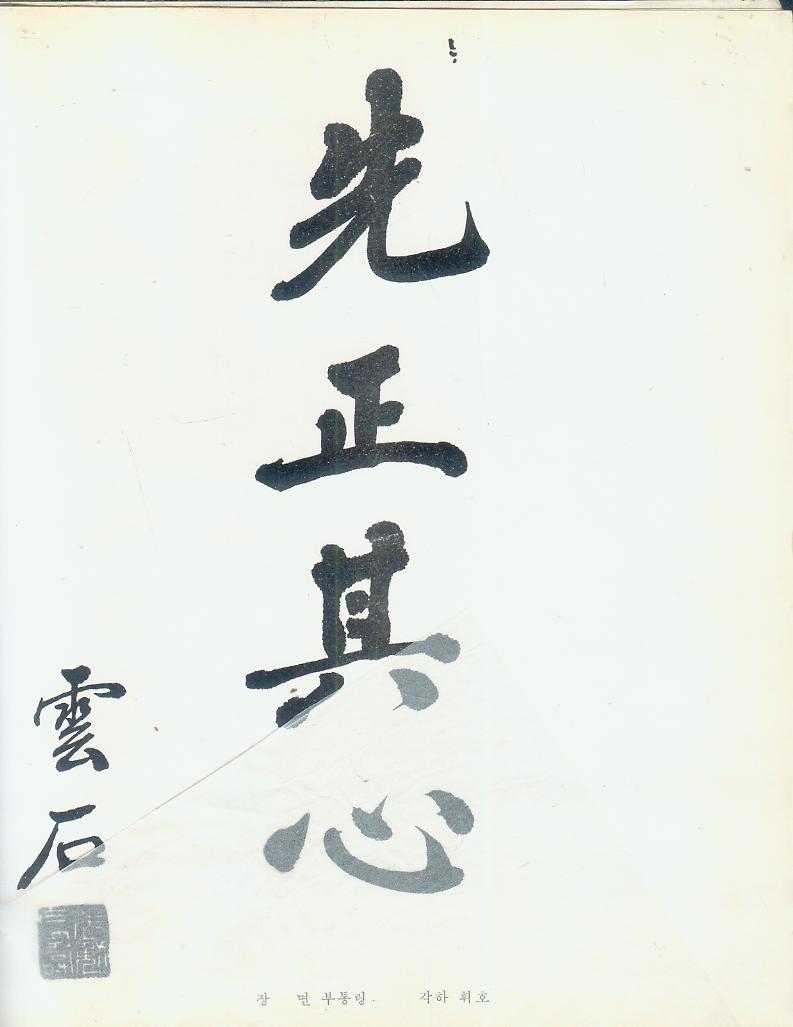 先正其心
雲石
장 면 부통령. 각하 휘호